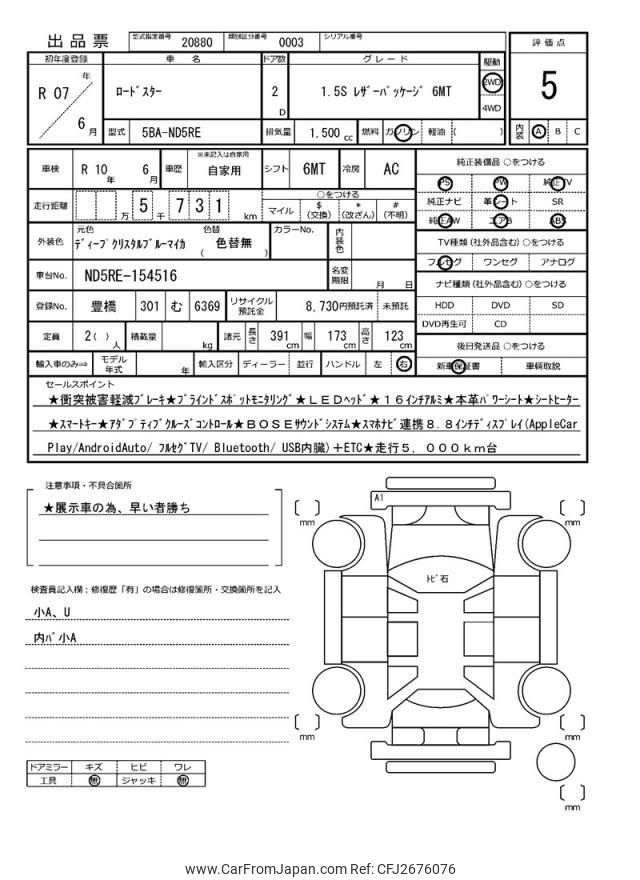 出品票
型式指定番号 20880 類別区分番号 0003 シリアル番号
評価点
初年度登録 車名 ドア数 グレード 駆動
R 07 年 6 月
ﾛｰﾄﾞｽﾀｰ
2 D
1.5S ﾚｻﾞｰﾊﾟｯｹｰｼﾞ 6MT
2WD
4WD
5
型式 5BA-ND5RE 排気量 1.500 cc 燃料 ガソリン 軽油 ( )
内装 A B C
車検 R 10 年 6 月 車歴 ※未記入は自家用 自家用 シフト 6MT 冷房 AC
純正装備品 ○をつける
PS PW 純正TV
純正ナビ 革シート SR
純正AW エアB ABS
走行距離 万 5 千 7 3 1 km
○をつける
マイル $ (交換) * (改ざん) # (不明)
外装色 元色 ﾃﾞｨｰﾌﾟｸﾘｽﾀﾙﾌﾞﾙｰﾏｲｶ 色替 ( 色替無 ) カラーNo. 内装色
TV種類 (社外品含む) ○をつける
フルセグ ワンセグ アナログ
車台No. ND5RE-154516 名変期限 月 日
ナビ種類 (社外品含む) ○をつける
HDD DVD SD
DVD再生可 CD
登録No. 豊橋 301 む 6369 リサイクル預託金 8,730円預託済 未預託
定員 2( ) 人 積載量 kg 諸元 長さ 391 cm 幅 173 cm 高さ 123 cm
後日発送品 ○をつける
新車保証書 車輌取説
輸入車のみ⇒ モデル年式 年 輸入区分 ディーラー 並行 ハンドル 左 右
セールスポイント
★衝突被害軽減ﾌﾞﾚｰｷ★ﾌﾞﾗｲﾝﾄﾞｽﾎﾟｯﾄﾓﾆﾀﾘﾝｸﾞ★ＬＥＤﾍｯﾄﾞ★１６インチアルミ★本革ﾊﾟﾜｰシート★シートヒーター
★スマートキー★ｱﾀﾞﾌﾟﾃｨﾌﾞｸﾙｰｽﾞｺﾝﾄﾛｰﾙ★ＢＯＳＥｻｳﾝﾄﾞｼｽﾃﾑ★ｽﾏﾎﾅﾋﾞ連携８.８インチﾃﾞｨｽﾌﾟﾚｲ(AppleCar
Play/AndroidAuto/ ﾌﾙｾｸﾞTV/ Bluetooth/ USB内臓)＋ETC★走行５，０００ｋｍ台
注意事項・不具合箇所
★展示車の為、早い者勝ち
検査員記入欄：修復歴「有」の場合は修復箇所・交換箇所を記入
小A、U
内ﾊﾞ小A
A1
ﾄﾋﾞ石
mm
mm
mm
mm
mm
ドアミラー キズ ヒビ ワレ
工具 無 ジャッキ 無
www.CarFromJapan.com Ref: CFJ2676076